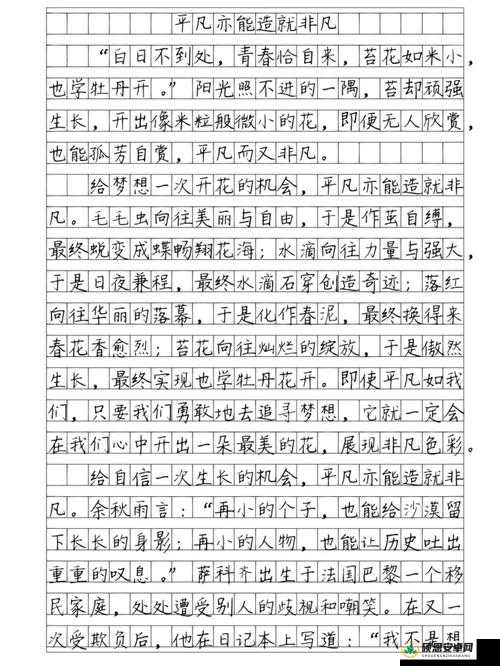 平凡亦能造就非凡
“白日不到处，青春恰自来，苔花如米小，
也学牡丹开。”阳光照不进的一隅，苔却顽强
生长，开出像米粒般微小的花，即便无人欣赏，
也能孤芳自赏，平凡而又非凡。
给梦想一次开花的机会，平凡亦能造就非
凡。毛毛虫向往美丽与自由，于是作茧自缚，
最终蜕变成蝶畅翔花海；水滴向往力量与强大，
于是日夜兼程，最终水滴石穿创造奇迹；落红
向往华丽的落幕，于是化作春泥，最终换得来
春花香愈烈；苔花向往灿烂的绽放，于是傲然
生长，最终实现也学牡丹花开。即使平凡如我
们，只要我们勇敢地去追寻梦想，它就一定会
在我们心中开出一朵最美的花，展现非凡色彩。
给自信一次生长的机会，平凡亦能造就非
凡。余秋雨言：“再小的个子，也能给沙漠留
下长长的身影；再小的人物，也能让历史吐出
重重的叹息。”萨科齐出生于法国巴黎一个移
民家庭，处处遭受别人的歧视和嘲笑。在又一
次受欺负后，他在日记本上写道：“我不是想